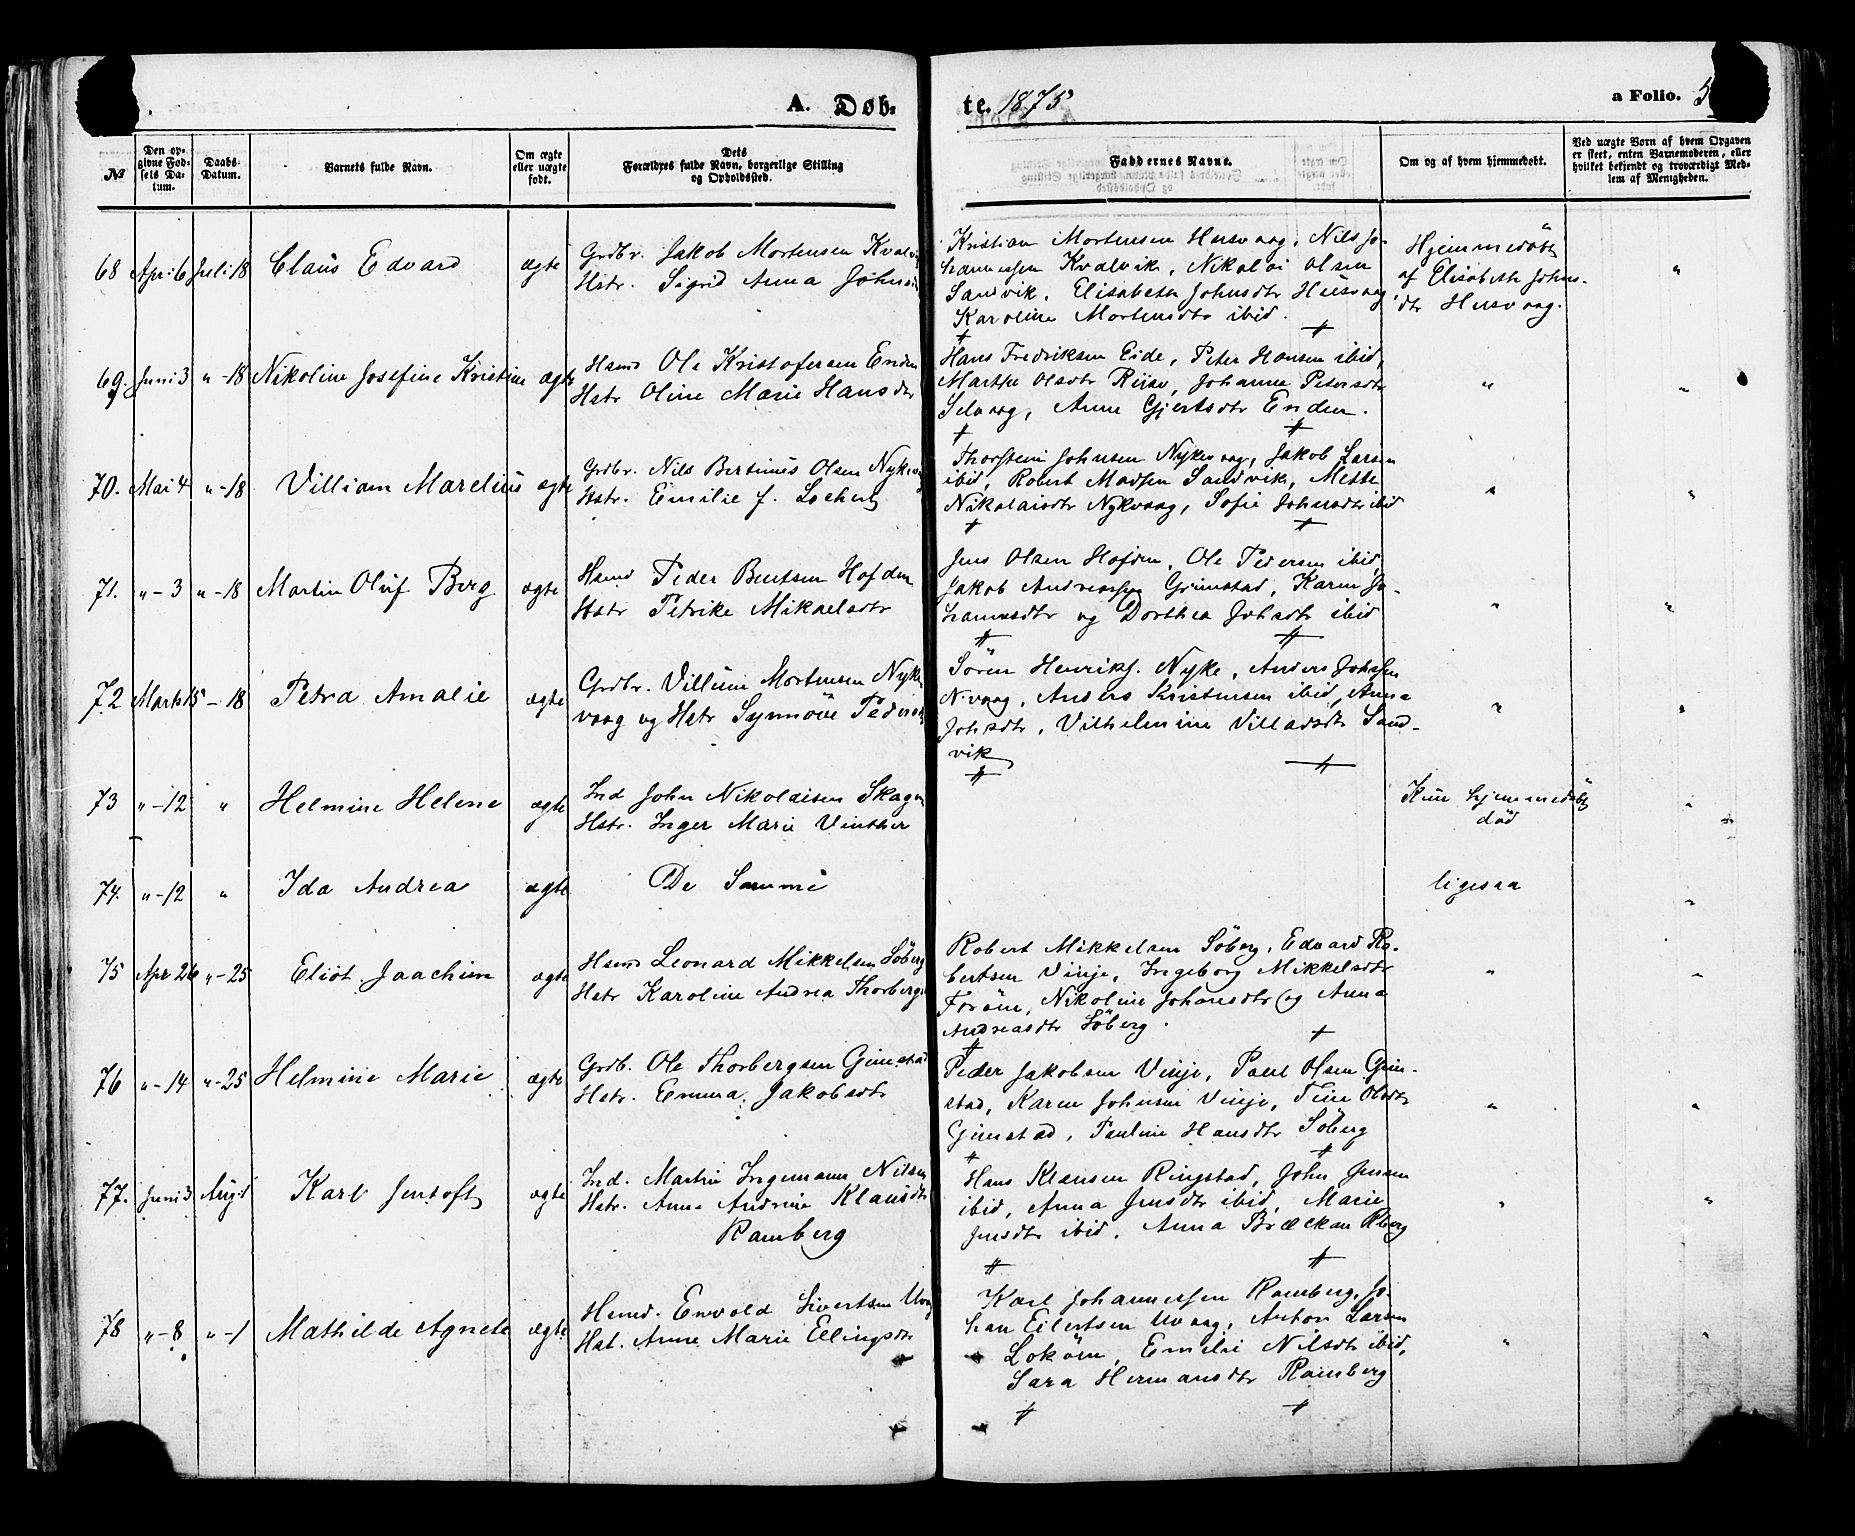 A. Døb-
te. 1875
a Folio. 5
№
Den op-
givne Fød-
sels Da-
tum.
Daabs-
Datum.
Barnets fulde Navn.
Om ægte
eller uægte
født.
Dets
Forældres fulde Navn, borgerlige Stilling
og Opholdssted.
Faddernes Navne.
Om og af hvem hjemmedøbt.
Ved uægte Børn af hvem Opgaven
er skeet, enten Barnemoderen, eller
hvilket bekjendt og troværdigt Med-
lem af Menigheden.
68 Apri 6 Juli 18 Claus Edvard ægte
Grdbr. Jakob Mortensen Kvalvi
Hstr. Sigrid Anna Johnsd
Kristian Mortensen Husvaag, Nils Jo-
hannessen Kvalvik, Nikolai Olsen
Sandvik, Elisabeth Johnsdtr Husvaag
Karoline Mortensdtr ibid.
Hjemmedøbt
af Elisabeth Johns-
dtr Husvaag.
69. Juni 3 " - 18 Nikoline Josefine Kristine ægte
Hsmd Ole Kristofersen Enden
Hstr Oline Marie Hansdtr
Hans Fredriksen Eide, Peter Hansen ibid,
Marthe Olsdtr Riise, Johanna Petersdtr
Selvaag, Anne Gjertsdtr Enden.
70. Mai 4 " - 18 Villiam Marelius ægte
Grdbr. Nils Bertinus Olsen Nykv
Hstr. Emilie f. Lochert
Thorstein Johnsen Nykvaag, Jakob Larsen
ibid, Robert Madsen Sandvik, Mette
Nikolaisdtr Nykvaag, Sofie Johnsdtr ibid
71. " - 3 " - 18 Martin Oluf Berg ægte
Hsmd Peder Bentsen Hofden
Hstr Petrike Mikaelsdtr
Jens Olsen Hofden, Ole Pedersen ibid,
Jakob Andreassen Grimstad, Karen Jo-
hannesdtr og Dorthea Johsdtr ibid
72 Marts 15 - 18 Petra Amalie ægte
Grdbr. Villum Mortensen Nyk
vaag og Hstr Synnöve Pedersdt
Sören Henriks. Nyke, Anders Johssen
N.vaag, Anders Kristensen ibid, Anna
Johsdtr, Vilhelmine Villadsdtr Sand-
vik
73 " - 12 " Helmine Helene ægte
Ind John Nikolaisen Skagen
Hstr. Inger Marie Vinther
Kun hjemmedøbt
död
74. " - 12 " Ida Andrea ægte
De Samme
ligesaa
75 Apr 26 " - 25 Eliot Joachim ægte
Hsmd Leonard Mikkelsen Söberg
Hstr Karoline Andrea Thorbergs
Robert Mikkelsen Söberg, Edvard Ro-
bertsen Vinje, Ingeborg Mikkelsdtr
Foröen, Nikoline Johansdtr og Anna
Andreasdtr Söberg.
76 " - 14 " - 25 Helmine Marie ægte
Grdb. Ole Thorbergsen Gimstad
Hstr. Emma Jakobsdtr
Peder Jakobsen Vinje, Paul Olsen Gim-
stad, Karen Johnsen Vinje, Tine Olsdtr
Gimstad, Pauline Hansdtr Söberg
77. Juni 3 Aug 1 Karl Jentoft ægte
Ind. Martin Ingemann Nilsen
Hstr. Anna Andrine Klausdtr
Ramberg
Hans Klausen Ringstad, John Jensen
ibid, Anna Jensdtr ibid, Marie
Jensdtr ibid, Anna Bræckan Rberg
78 " - 8 " - 1 Mathilde Agnete ægte
Hsmd. Envold Sivertsen Uvaag
Hst. Anne Marie Ellingsdtr
Karl Johannessen Ramberg, Jo-
han Eilertsen Uvaag, Anton Larsen
Loköen, Emilie Nilsdtr ibid,
Sara Hermansdtr Ramberg